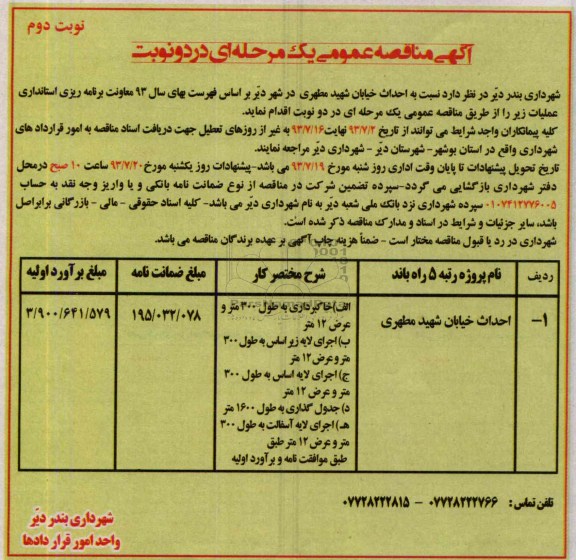 نوبت دوم
آگهی مناقصه عمومی یک مرحله ای در دو نوبت
شهرداری بندر دیّر در نظر دارد نسبت به احداث خیابان شهید مطهری در شهر دیّر بر اساس فهرست بهای سال ۹۳ معاونت برنامه ریزی استانداری
عملیات زیر را از طریق مناقصه عمومی یک مرحله ای در دو نوبت اقدام نماید.
کلیه پیمانکاران واجد شرایط می توانند از تاریخ ۹۳/۷/۲ نهایت ۹۳/۷/۱۶ به غیر از روزهای تعطیل جهت دریافت اسناد مناقصه به امور قرارداد های
شهرداری واقع در استان بوشهر- شهرستان دیّر - شهرداری دیّر مراجعه نمایند.
تاریخ تحویل پیشنهادات تا پایان وقت اداری روز شنبه مورخ ۹۳/۷/۱۹ می باشد-پیشنهادات روز یکشنبه مورخ ۹۳/۷/۲۰ ساعت ۱۰ صبح درمحل
دفتر شهرداری بازگشایی می گردد-سپرده تضمین شرکت در مناقصه از نوع ضمانت نامه بانکی و یا واریز وجه نقد به حساب
۰۱۰۷۴۱۲۷۷۶۰۰۵ سپرده شهرداری نزد بانک ملی شعبه دیّر به نام شهرداری دیّر می باشد- کلیه اسناد حقوقی - مالی - بازرگانی برابراصل
باشد، سایر جزئیات و شرایط در اسناد و مدارک مناقصه ذکر شده است.
شهرداری در رد یا قبول مناقصه مختار است - ضمناً هزینه چاپ آگهی بر عهده برندگان مناقصه می باشد.
ردیف نام پروژه رتبه ۵ راه باند شرح مختصر کار مبلغ ضمانت نامه مبلغ برآورد اولیه
۱- احداث خیابان شهید مطهری الف)خاکبرداری به طول ۳۰۰ متر و ۱۹۵/۰۳۲/۰۷۸ ۳/۹۰۰/۶۴۱/۵۷۹
عرض ۱۲ متر
ب)اجرای لایه زیر اساس به طول ۳۰۰
متر و عرض ۱۲ متر
ج) اجرای لایه اساس به طول ۳۰۰
متر و عرض ۱۲ متر
د) جدول گذاری به طول ۱۶۰۰ متر
هـ) اجرای لایه آسفالت به طول ۳۰۰
متر و عرض ۱۲ متر طبق
طبق موافقت نامه و برآورد اولیه
تلفن تماس: ۰۷۷۲۸۲۲۲۷۶۶ - ۰۷۷۲۸۲۲۲۸۱۵
شهرداری بندر دیّر
واحد امور قرار دادها